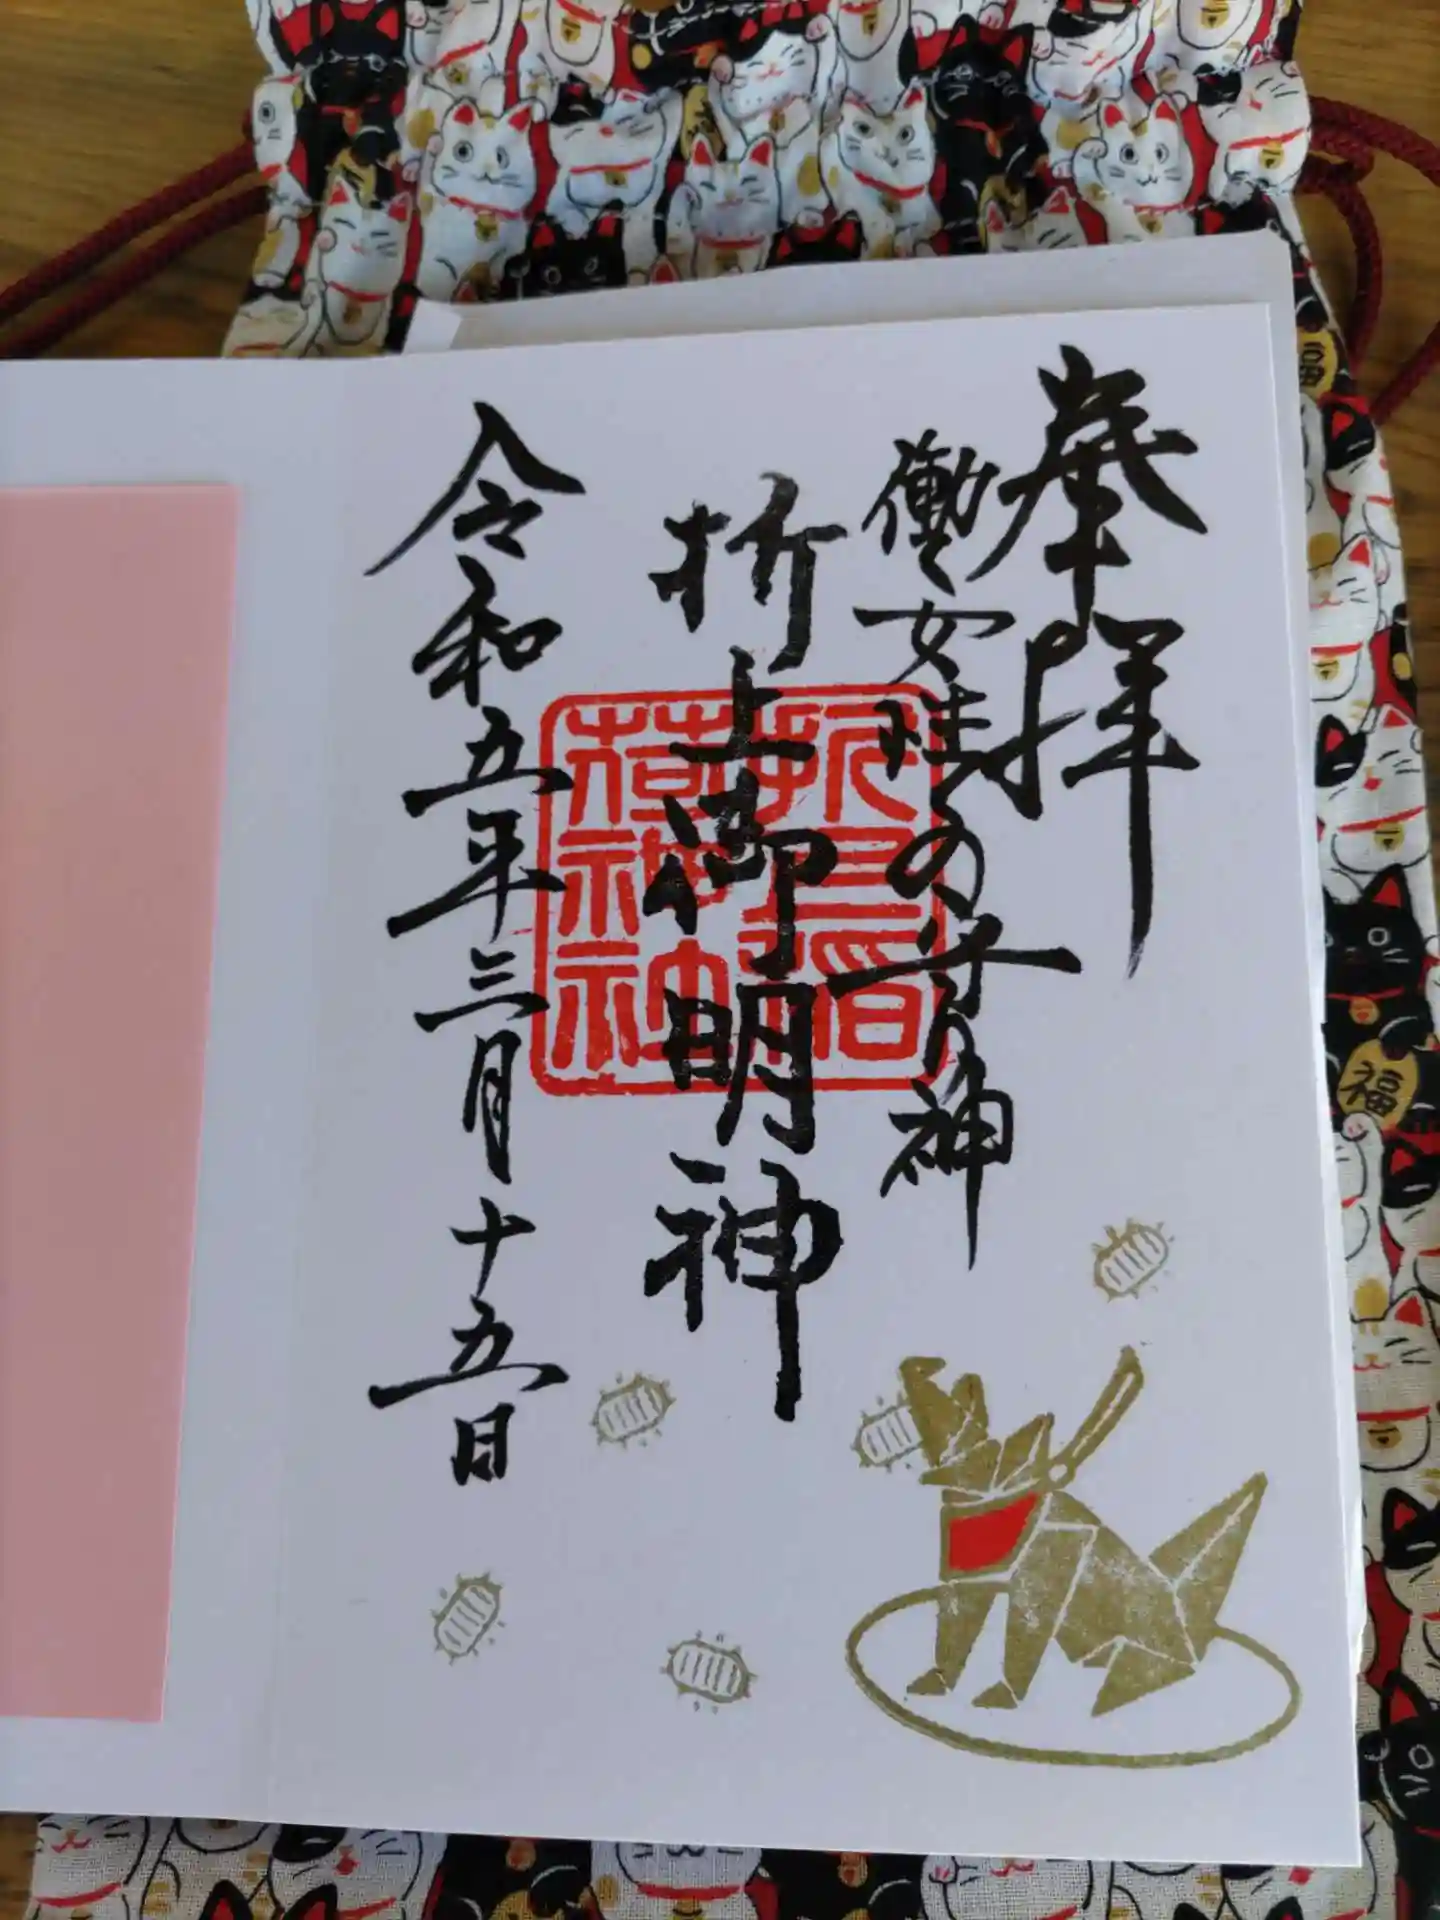 奉拝
働く女性の守り神
折上御明神
折上稲荷神社
令和五年三月十五日
福